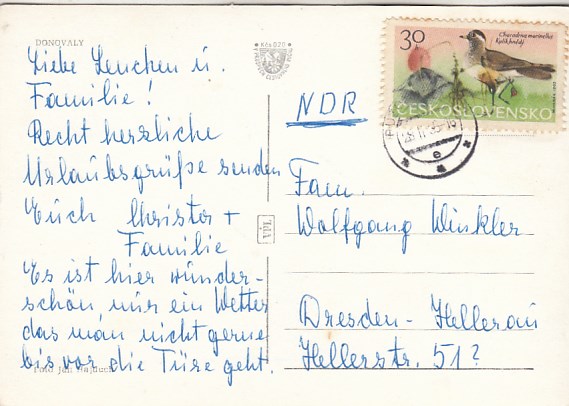 DONOVALY
Kčs 0,20
Liebe Lenchen u.
Familie!
Recht herzliche
Urlaubsgrüße senden
Euch Christa +
Familie
Es ist hier wunder-
schön, nur ein Wetter
das man nicht gerne
bis vor die Türe geht.
Foto Ján
VPL
NDR
30
Charadrius morinellus
Kulík hnědý
ČESKOSLOVENSKO
Fam.
Wolfgang Winkler
Dresden-Hellerau
Hellerstr. 51?